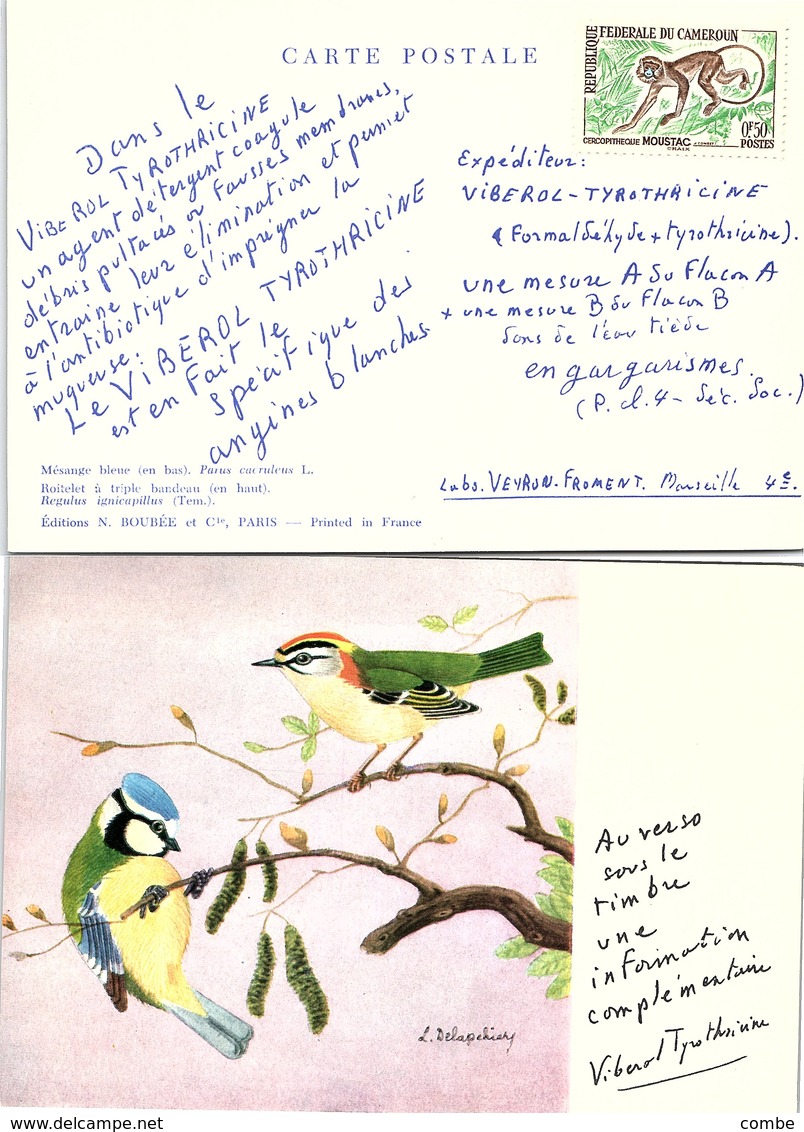 CARTE POSTALE
RÉPUBLIQUE FÉDÉRALE DU CAMEROUN
0F50
POSTES
CERCOPITHEQUE MOUSTAC
Dans le
VIBEROL TYROTHRICINE
un agent détergent coagule
débris pultacés ou fausses membranes,
entraine leur élimination et permet
à l'antibiotique d'imprégner la
muqueuse:
Le VIBEROL TYROTHRICINE
est en fait le
spécifique des
angines blanches.
Expéditeur:
VIBEROL-TYROTHRICINE
(Formaldéhyde + tyrothricine).
une mesure A du Flacon A
+ une mesure B du Flacon B
dans de l'eau tiède
en gargarismes.
(P. cl. 4 - Séc. Soc.)
Labo. VEYRON-FROMENT. Marseille 4e.
Mésange bleue (en bas). Parus caeruleus L.
Roitelet à triple bandeau (en haut).
Regulus ignicapillus (Tem.).
Éditions N. BOUBÉE et Cie, PARIS — Printed in France
L. Delapchier
Au verso
sous le
timbre
une
information
complémentaire
Viberol Tyrothricine
www.delcampe.net
combe